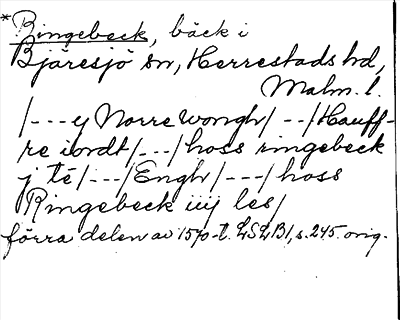 *Ringebeck, bäck i
Bjäresjö sn, Herrestads hd,
Malm. l.
/---y Norre wongh/--/Hauff-
re iordt/---/hoss ringebeck
j té/---/Engh/---/hoss
Ringebeck iiij les/
förra delen av 1570-t. LSLB1, s. 245. orig.